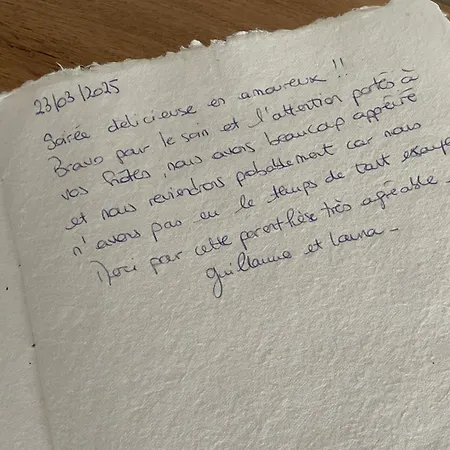 23/03/2025
Soirée délicieuse en amoureux !!
Bravo pour le soin et l'attention portés à
vos hôtes, nous avons beaucoup apprécié
et nous reviendrons probablement car nous
n'avons pas eu le temps de tout essayer
Merci pour cette parenthèse très agréable -
Guillaume et Laura -